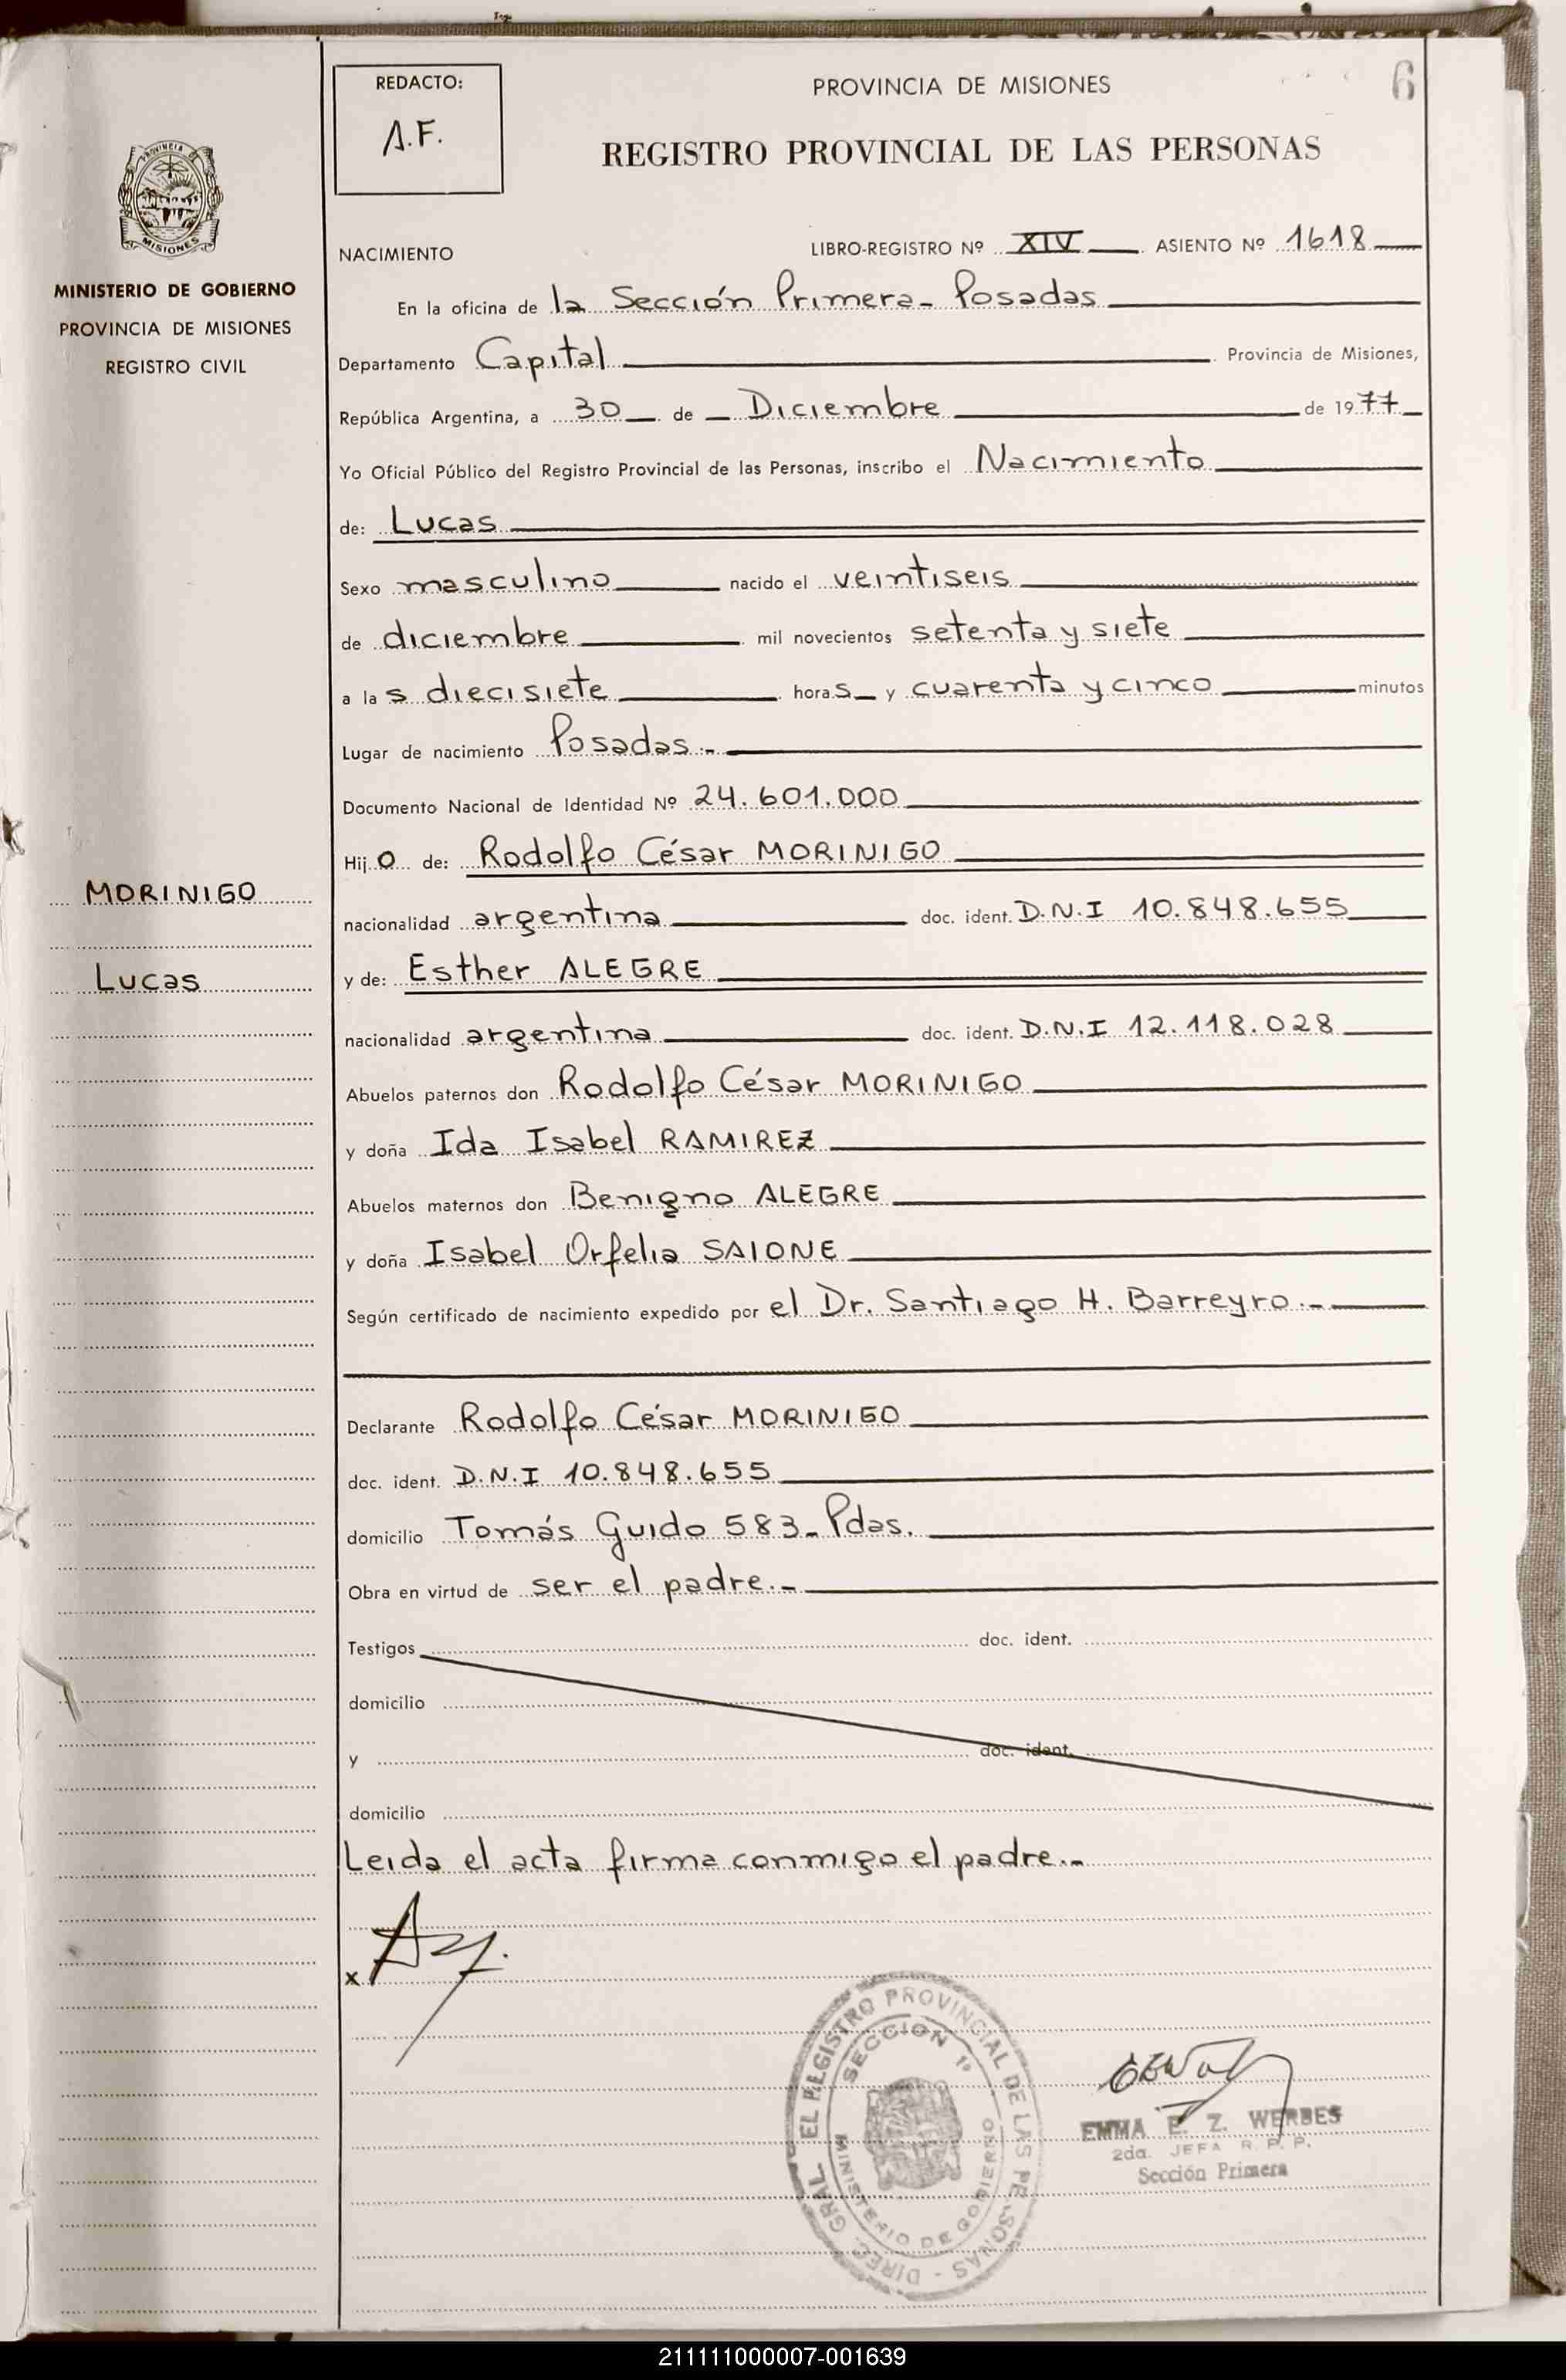 REDACTO:
A.F.
PROVINCIA DE MISIONES
6
REGISTRO PROVINCIAL DE LAS PERSONAS
PROVINCIA DE
MISIONES
MINISTERIO DE GOBIERNO
PROVINCIA DE MISIONES
REGISTRO CIVIL
NACIMIENTO
LIBRO-REGISTRO Nº XIV ASIENTO Nº 1618
En la oficina de la Sección Primera - Posadas
Departamento Capital Provincia de Misiones,
República Argentina, a 30 de Diciembre de 1977
Yo Oficial Público del Registro Provincial de las Personas, inscribo el Nacimiento
de: Lucas
Sexo masculino nacido el veintiseis
de diciembre mil novecientos setenta y siete
a las diecisiete horas y cuarenta y cinco minutos
Lugar de nacimiento Posadas.-
Documento Nacional de Identidad Nº 24.601.000
Hijo de: Rodolfo César MORINIGO
MORINIGO
nacionalidad argentina doc. ident. D.N.I 10.848.655
y de: Esther ALEGRE
Lucas
nacionalidad argentina doc. ident. D.N.I 12.118.028
Abuelos paternos don Rodolfo César MORINIGO
y doña Ida Isabel RAMIREZ
Abuelos maternos don Benigno ALEGRE
y doña Isabel Orfelia SAIONE
Según certificado de nacimiento expedido por el Dr. Santiago H. Barreyro.-
Declarante Rodolfo César MORINIGO
doc. ident. D.N.I 10.848.655
domicilio Tomás Guido 583 - Pdas.
Obra en virtud de ser el padre.-
Testigos doc. ident.
domicilio
y doc. ident.
domicilio
Leida el acta firma conmigo el padre.-
x
DIREC. GRAL. EL REGISTRO PROVINCIAL DE LAS PERSONAS -
SECCION 1º
MINISTERIO DE GOBIERNO
EMMA E. Z. WERBES
2da. JEFA R. P. P.
Sección Primera
211111000007-001639